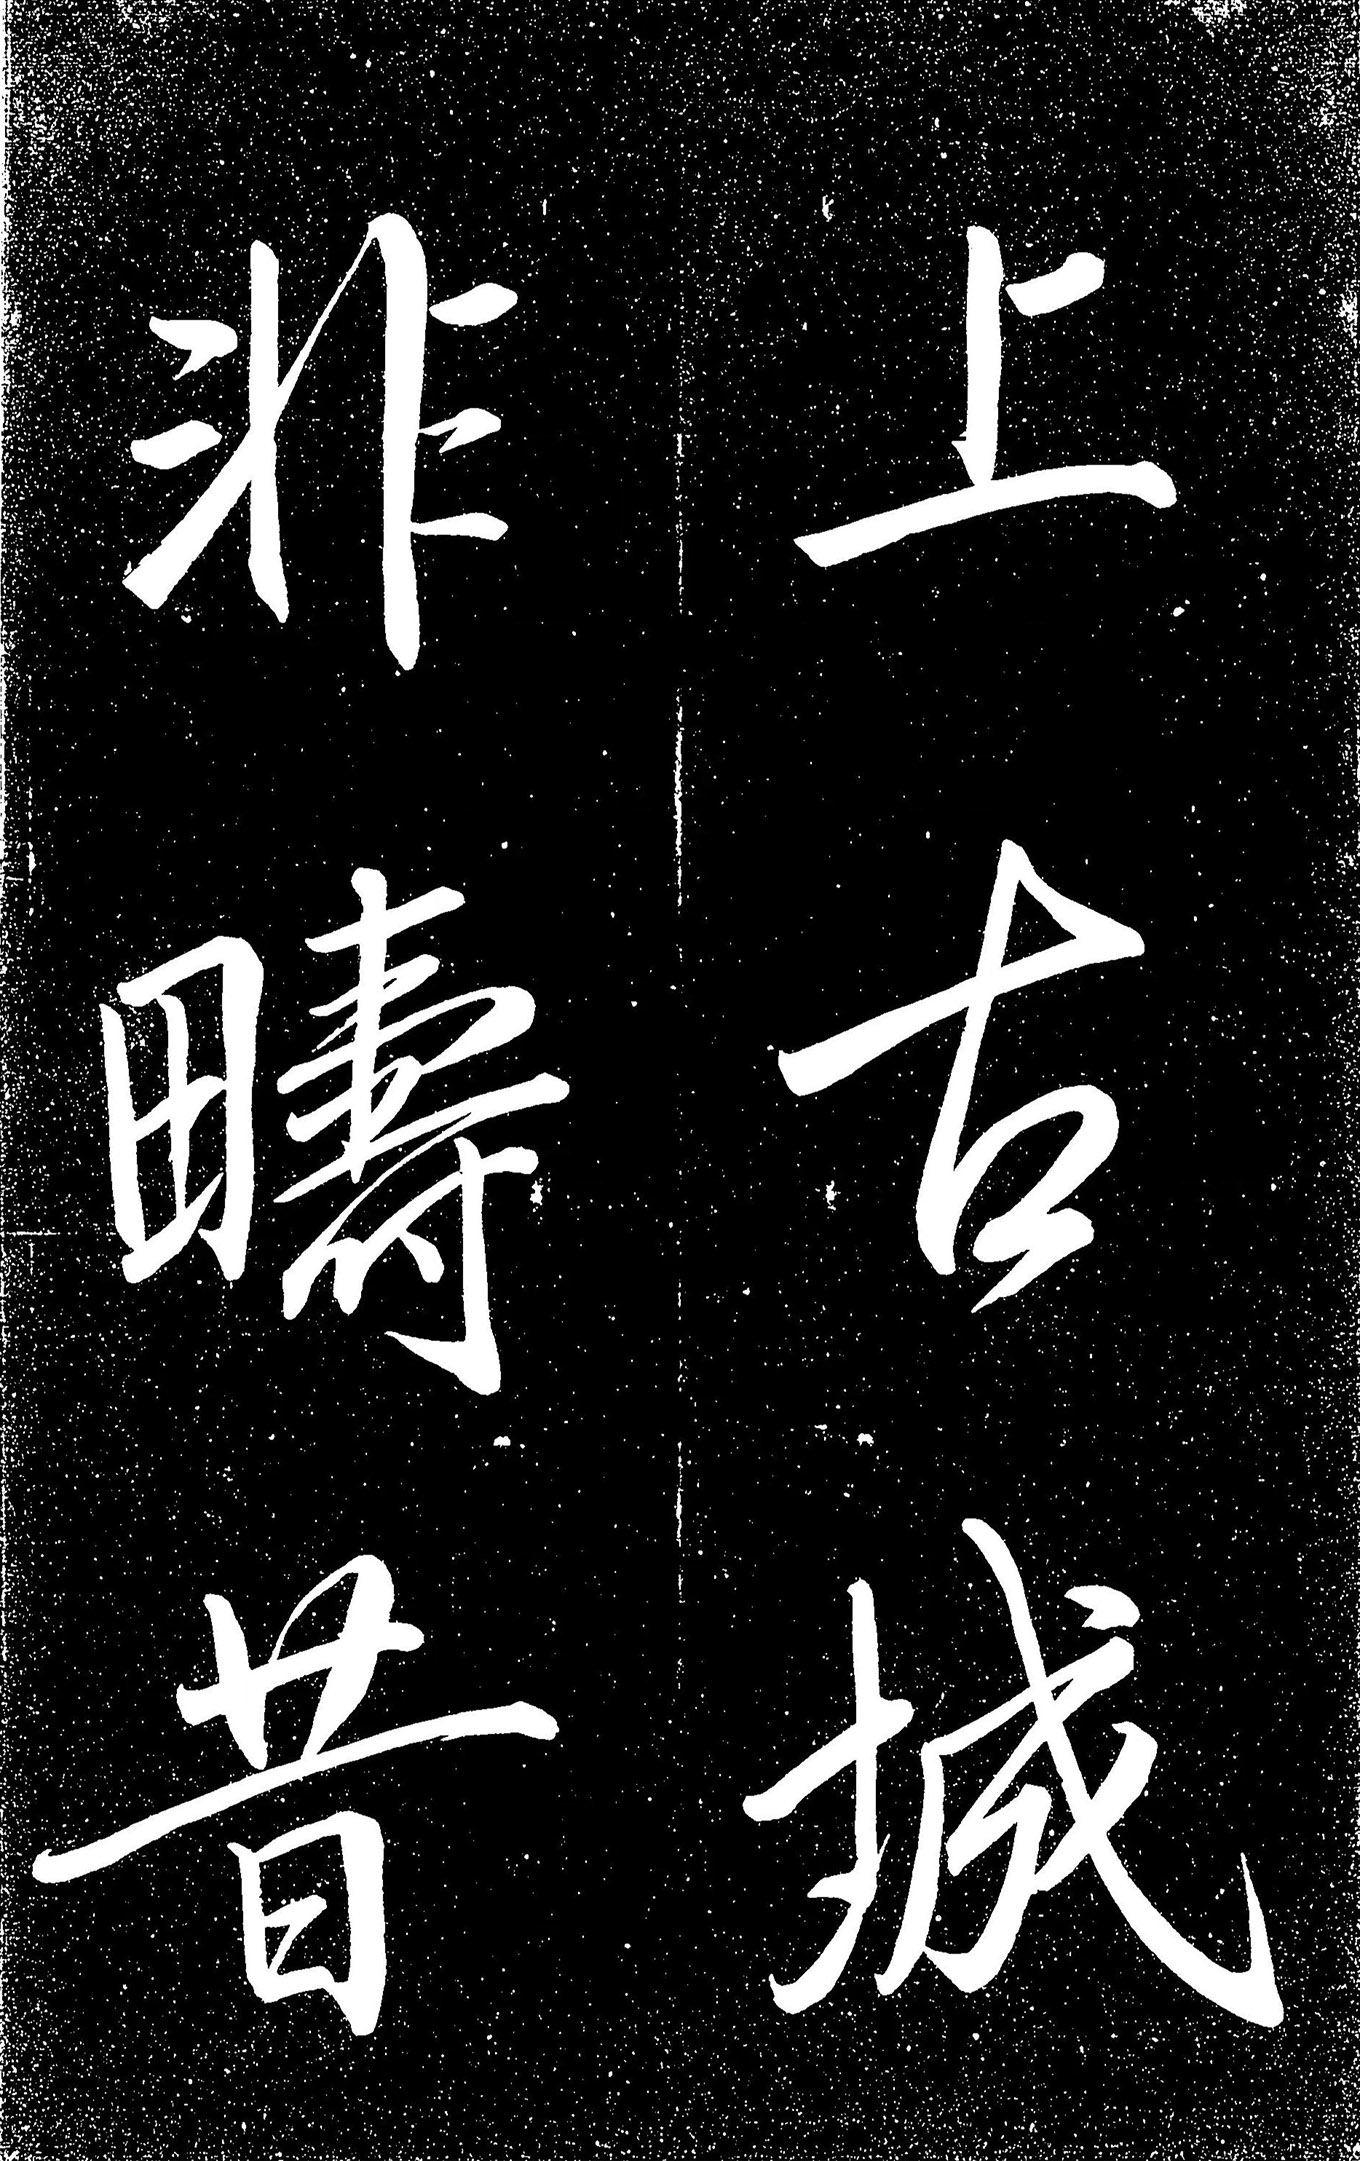 上古城
非疇昔